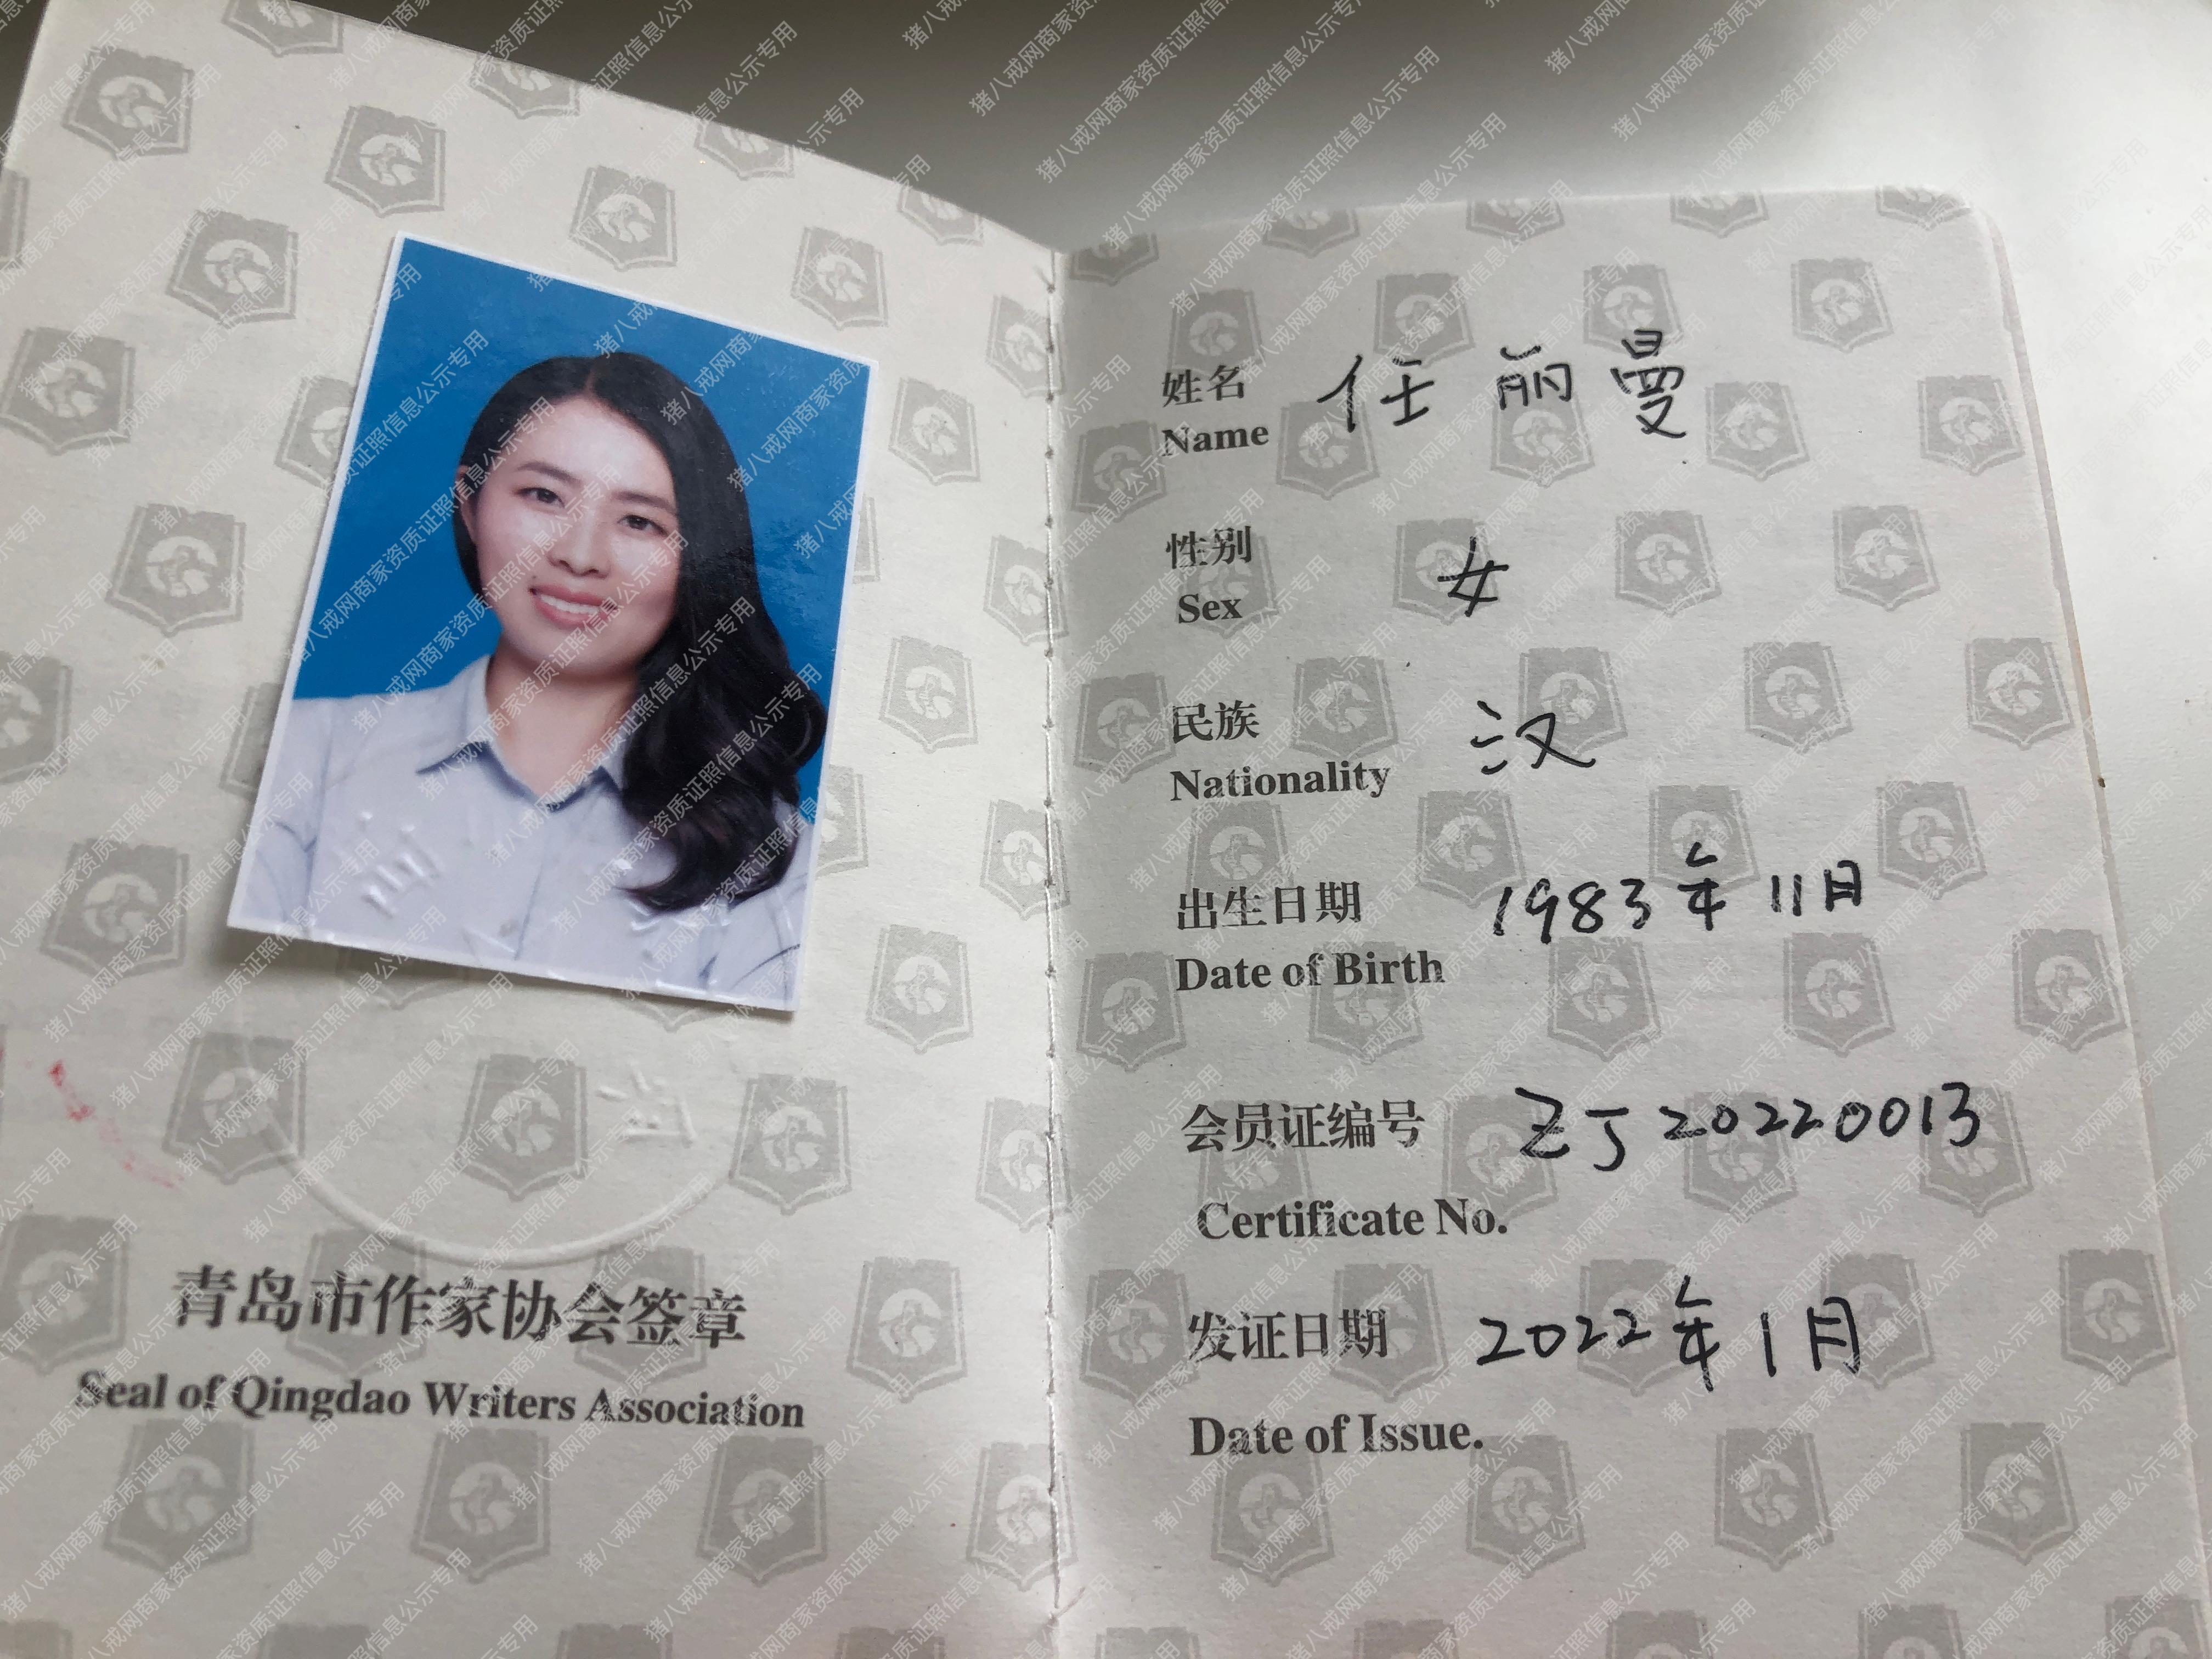 青岛市作家协会签章
Seal of Qingdao Writers Association
姓名 任丽曼
Name
性别 女
Sex
民族 汉
Nationality
出生日期 1983年11月
Date of Birth
会员证编号 ZJ20220013
Certificate No.
发证日期 2022年1月
Date of Issue.
猪八戒网商家资质证照信息公示专用